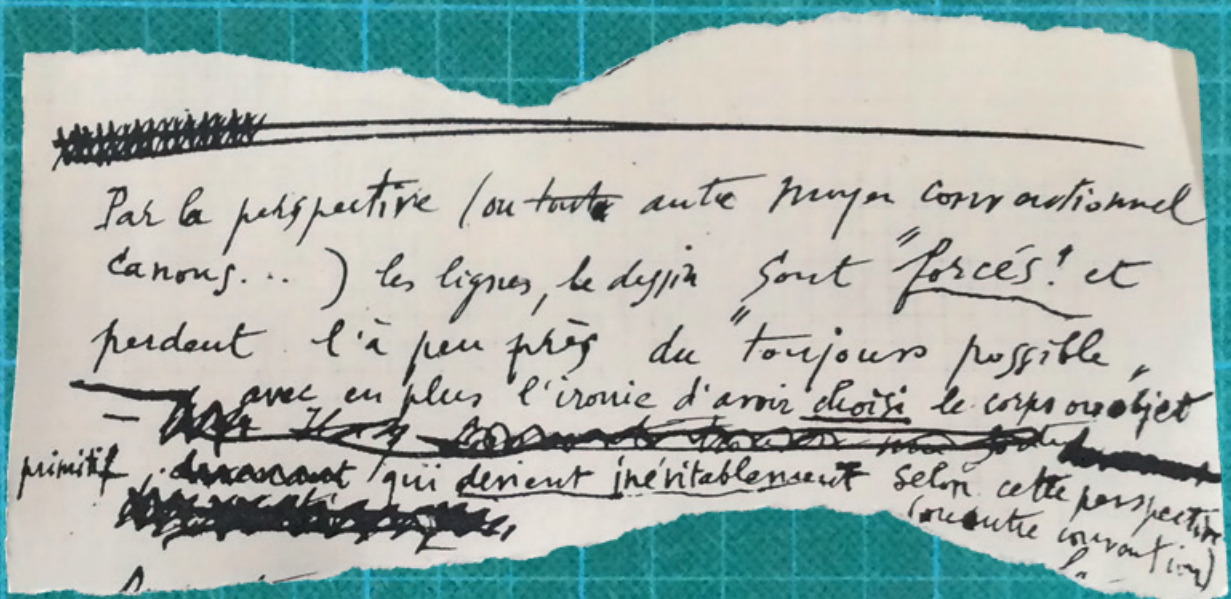 Par la perspective (ou toute autre moyen conventionnel
canons...) les lignes, le dessin sont "forcés" et
perdent l'à peu près du "toujours possible"
— avec en plus l'ironie d'avoir choisi le corps ou objet
primitif, qui devient inévitablement selon cette perspective
(ou autre convention)